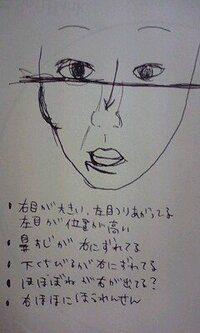 ・右目が大きい、左目つりあがってる
左目が位置が高い
・鼻すじが右にずれてる
・下くちびるが右にずれてる
・ほほぼねが右が出てる?
・右ほほにほうれんせん